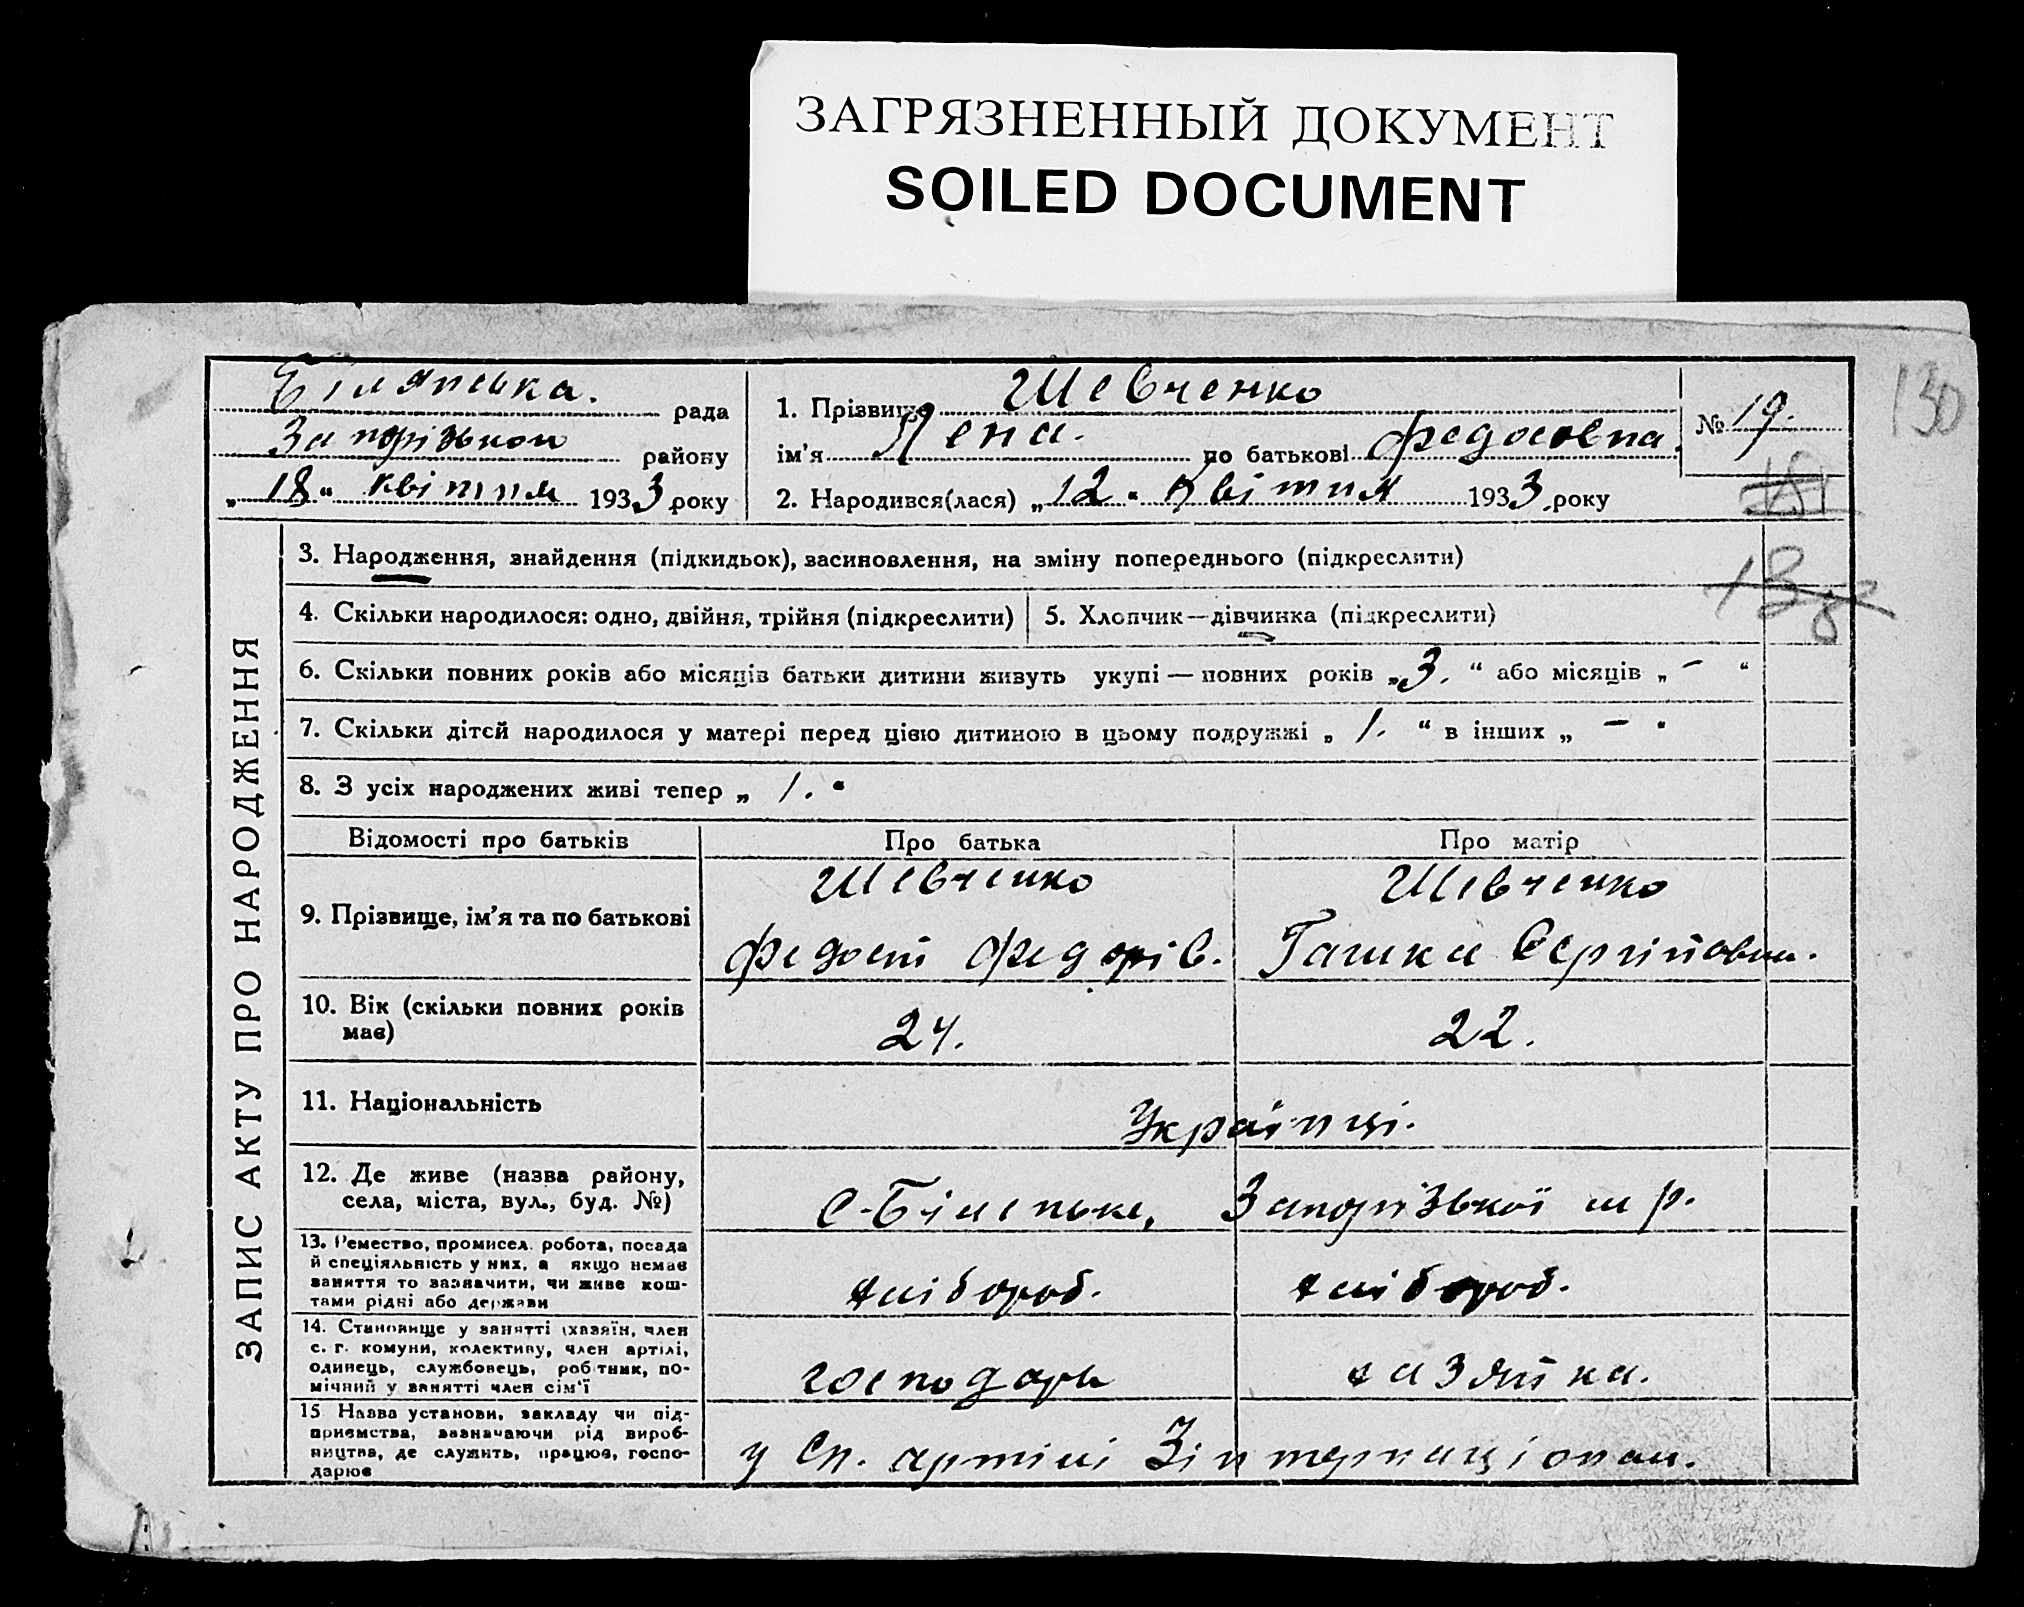 ЗАГРЯЗНЕННЫЙ ДОКУМЕНТ
SOILED DOCUMENT
130
Білянська. рада
Запорізького району
„18" квітня 1933 року
1. Прізвище Шевченко
ім'я Лена. по батькові Федосовна.
2. Народився(лася) „12" квітня 1933 року
№ 19.
ЗАПИС АКТУ ПРО НАРОДЖЕННЯ
3. Народження, знайдення (підкидьок), засиновлення, на зміну попереднього (підкреслити)
4. Скільки народилося: одно, двійня, трійня (підкреслити)
5. Хлопчик—дівчинка (підкреслити)
6. Скільки повних років або місяців батьки дитини живуть укупі — повних років „3." або місяців „–"
7. Скільки дітей народилося у матері перед цією дитиною в цьому подружжі „1." в інших „–"
8. З усіх народжених живі тепер „1."
Відомості про батьків Про батька Про матір
9. Прізвище, ім'я та по батькові
Шевченко
Федост Федорів.
Шевченко
Гашка Сергійовна.
10. Вік (скільки повних років
має)
24.
22.
11. Національність
Українці.
12. Де живе (назва району,
села, міста, вул., буд. №)
с-Біленьке, Запорізької м р.
13. Ремество, промисел. робота, посада
й спеціяльність у них, а якщо немає
заняття то зазначити, чи живе кош-
тами рідні або держави
хлібороб.
хлібороб.
14. Становище у занятті (хазяїн, член
с. г. комуни, колективу, член артілі,
одинець, службовець, робітник, по-
мічний у занятті член сім'ї
господарь
хазяйка.
15 Назва установи, закладу чи під-
приємства, зазначаючи рід вироб-
ництва, де служить, працює, госпо-
дарює
у Сп. артілі Зінтернаціонал.